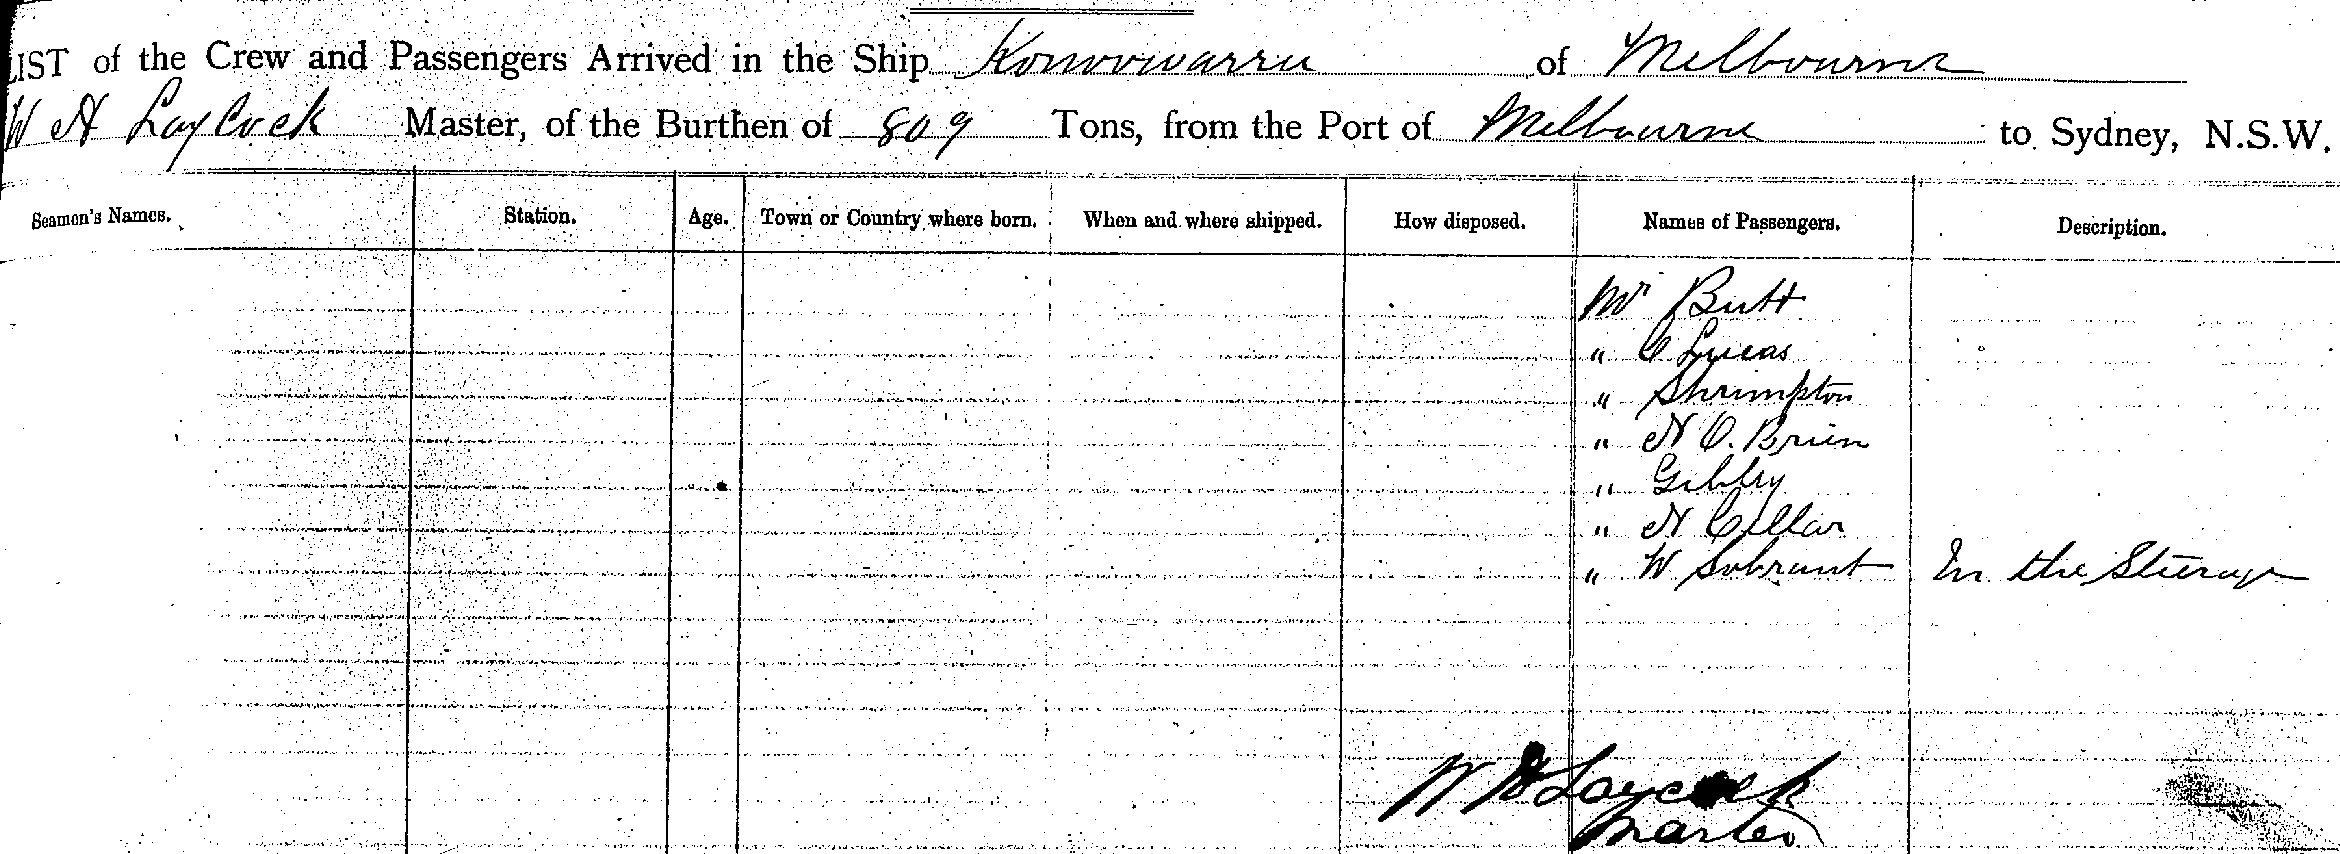 LIST of the Crew and Passengers Arrived in the Ship Konoowarra of Melbourne
W H Laycock Master, of the Burthen of 809 Tons, from the Port of Melbourne to Sydney, N.S.W.
Seamen's Names. Station. Age. Town or Country where born. When and where shipped. How disposed. Names of Passengers. Description.
Mr Butt
" C Lucas
" Shrimpton
" H O.Brien
" Gibby
" H Cellar
" W Sobrant In the Steerage
W H Laycock
Master